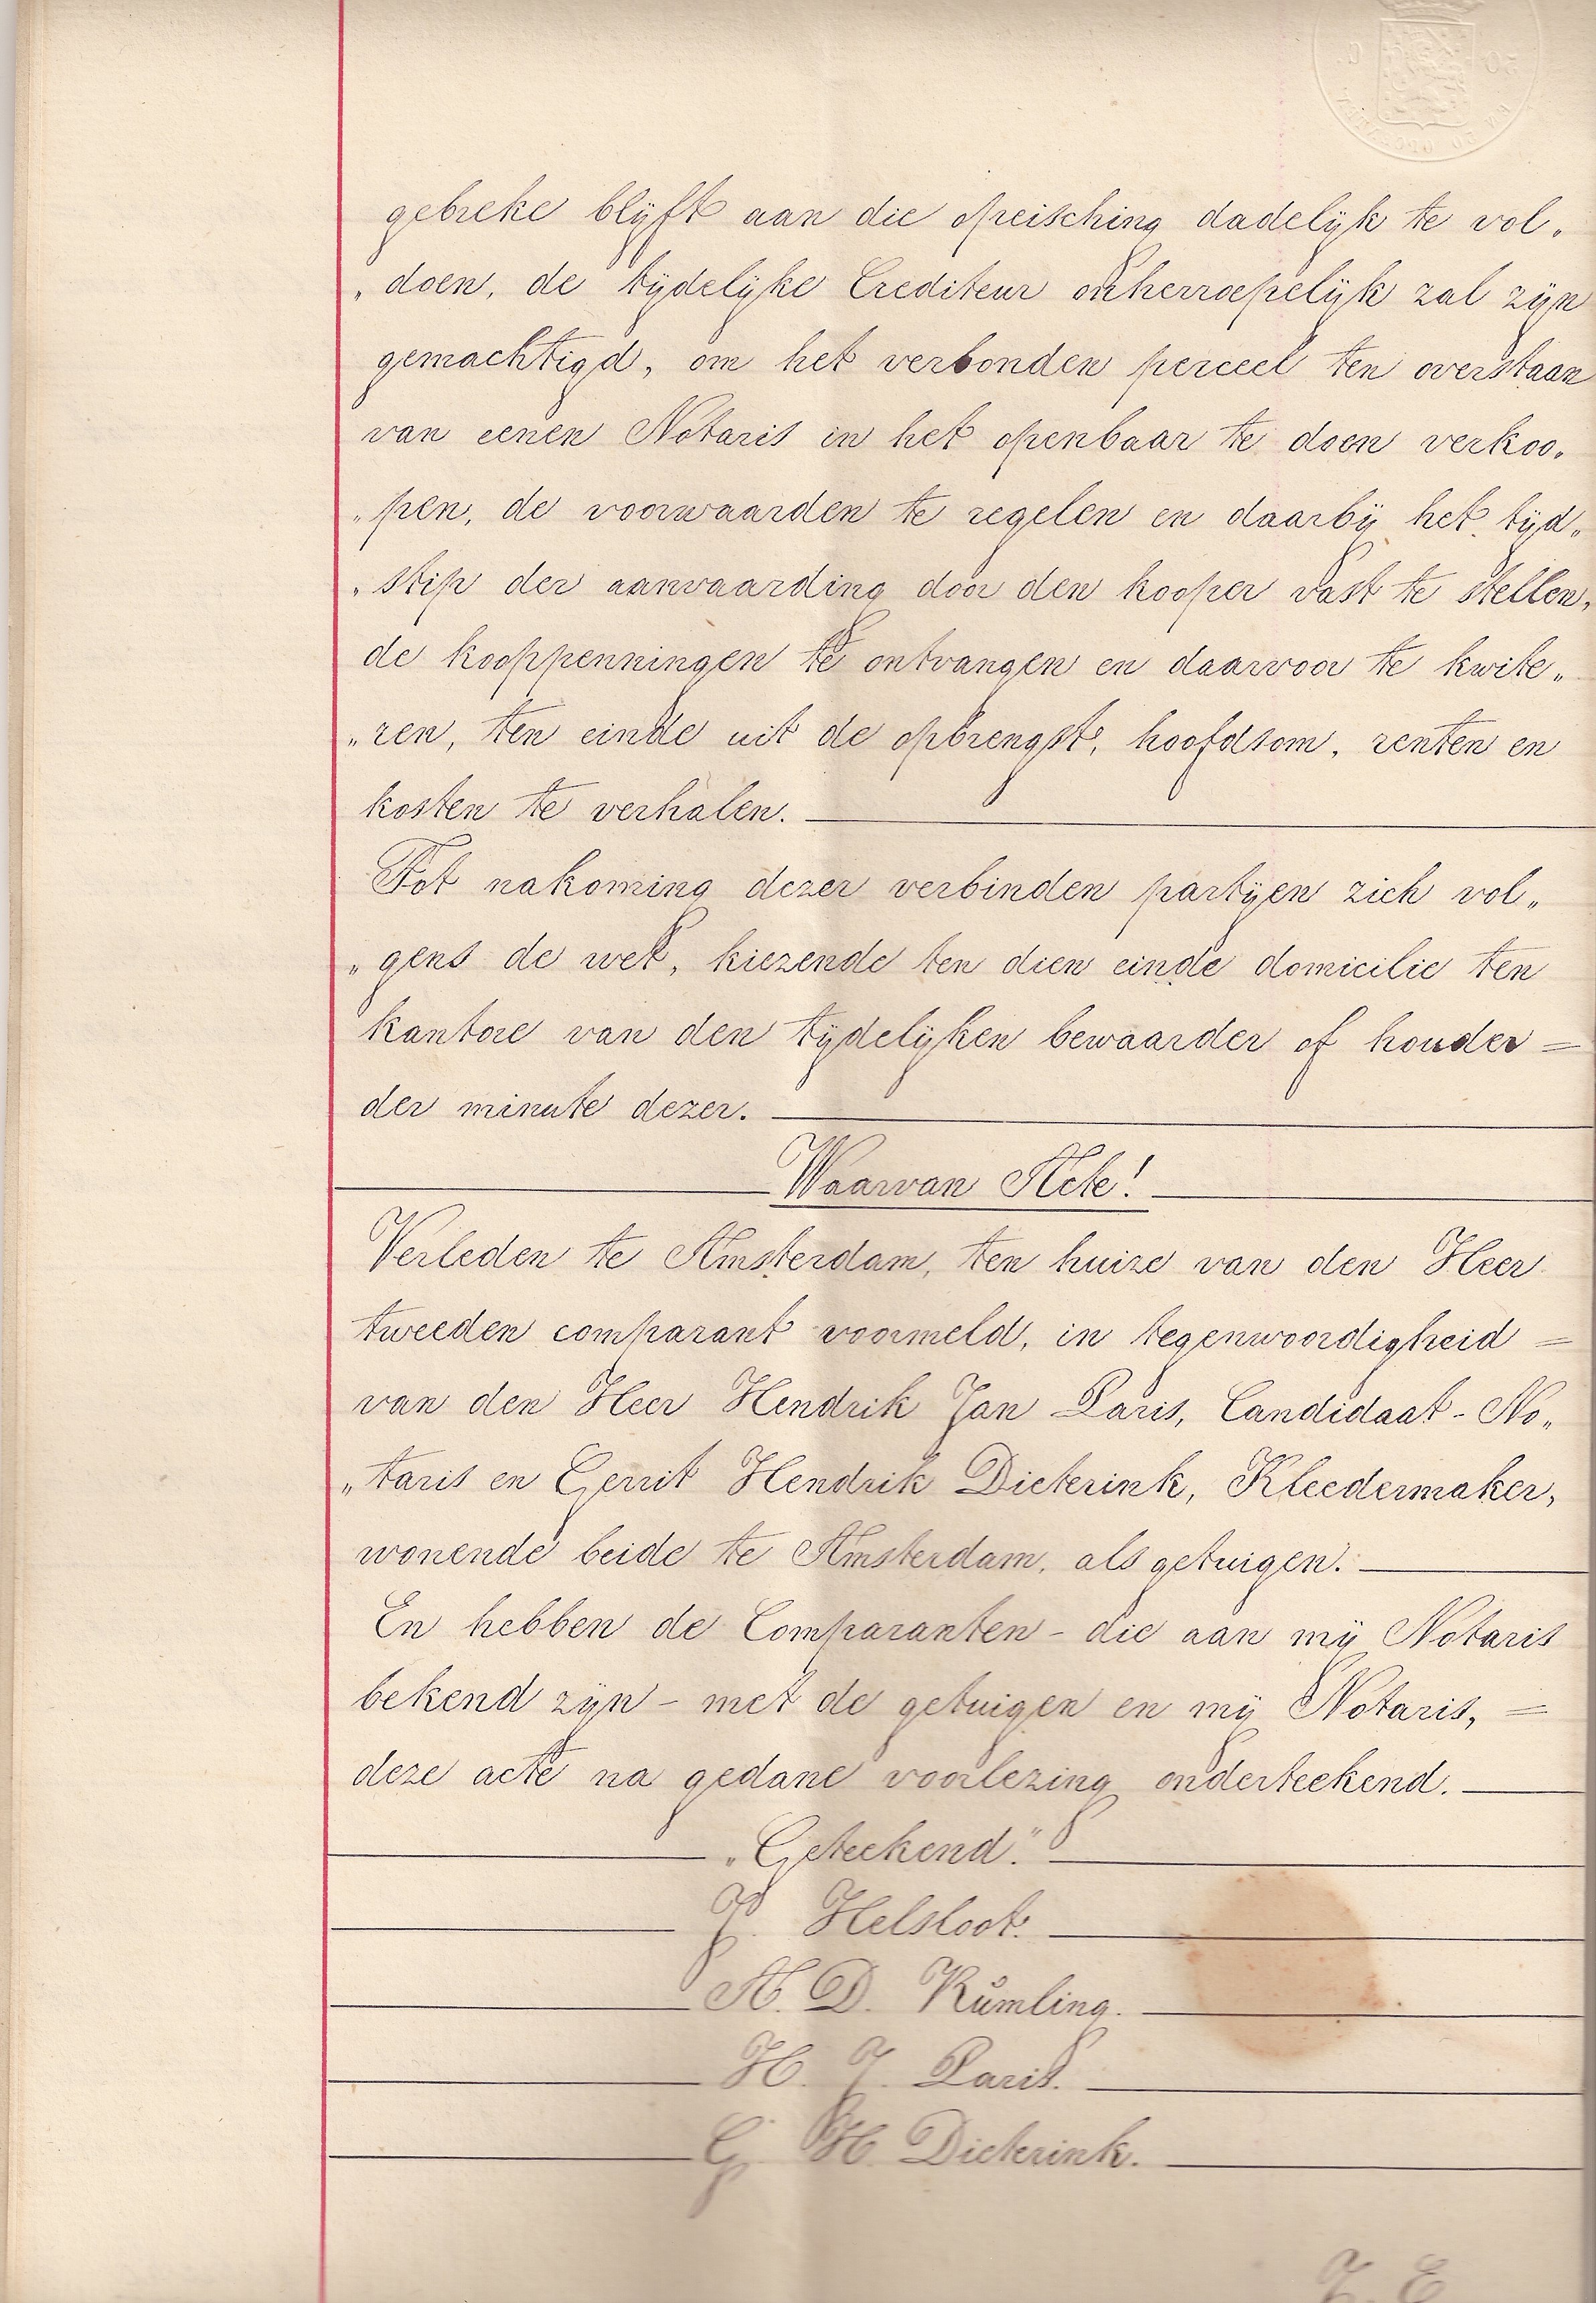 gebreke blijft aan die opeisching dadelijk te vol„
„doen, de tijdelijke Crediteur onherroepelijk zal zijn
gemachtigd, om het verbonden perceel ten overstaan
van eenen Notaris in het openbaar te doen verkoo„
„pen, de voorwaarden te regelen en daarbij het tijd„
„stip der aanvaarding door den kooper vast te stellen,
de kooppenningen te ontvangen en daarvoor te kwite„
„ren, ten einde uit de opbrengst, hoofdsom, renten en
kosten te verhalen.
Tot nakoming dezer verbinden partijen zich vol„
„gens de wet, kiezende ten dien einde domicilie ten
kantore van den tijdelijken bewaarder of houder =
der minute dezer.
Waarvan Acte!
Verleden te Amsterdam, ten huize van den Heer
tweeden comparant voormeld, in tegenwoordigheid =
van den Heer Hendrik Jan Paris, Candidaat-No„
„taris en Gerrit Hendrik Dieterink, Kleedermaker,
wonende beide te Amsterdam, als getuigen.
En hebben de Comparanten - die aan mij Notaris
bekend zijn - met de getuigen en mij Notaris, =
deze acte na gedane voorlezing onderteekend.
„Geteekend."
J. Helsloot.
A. D. Kůmling.
H. J. Paris.
G. H. Dieterink.